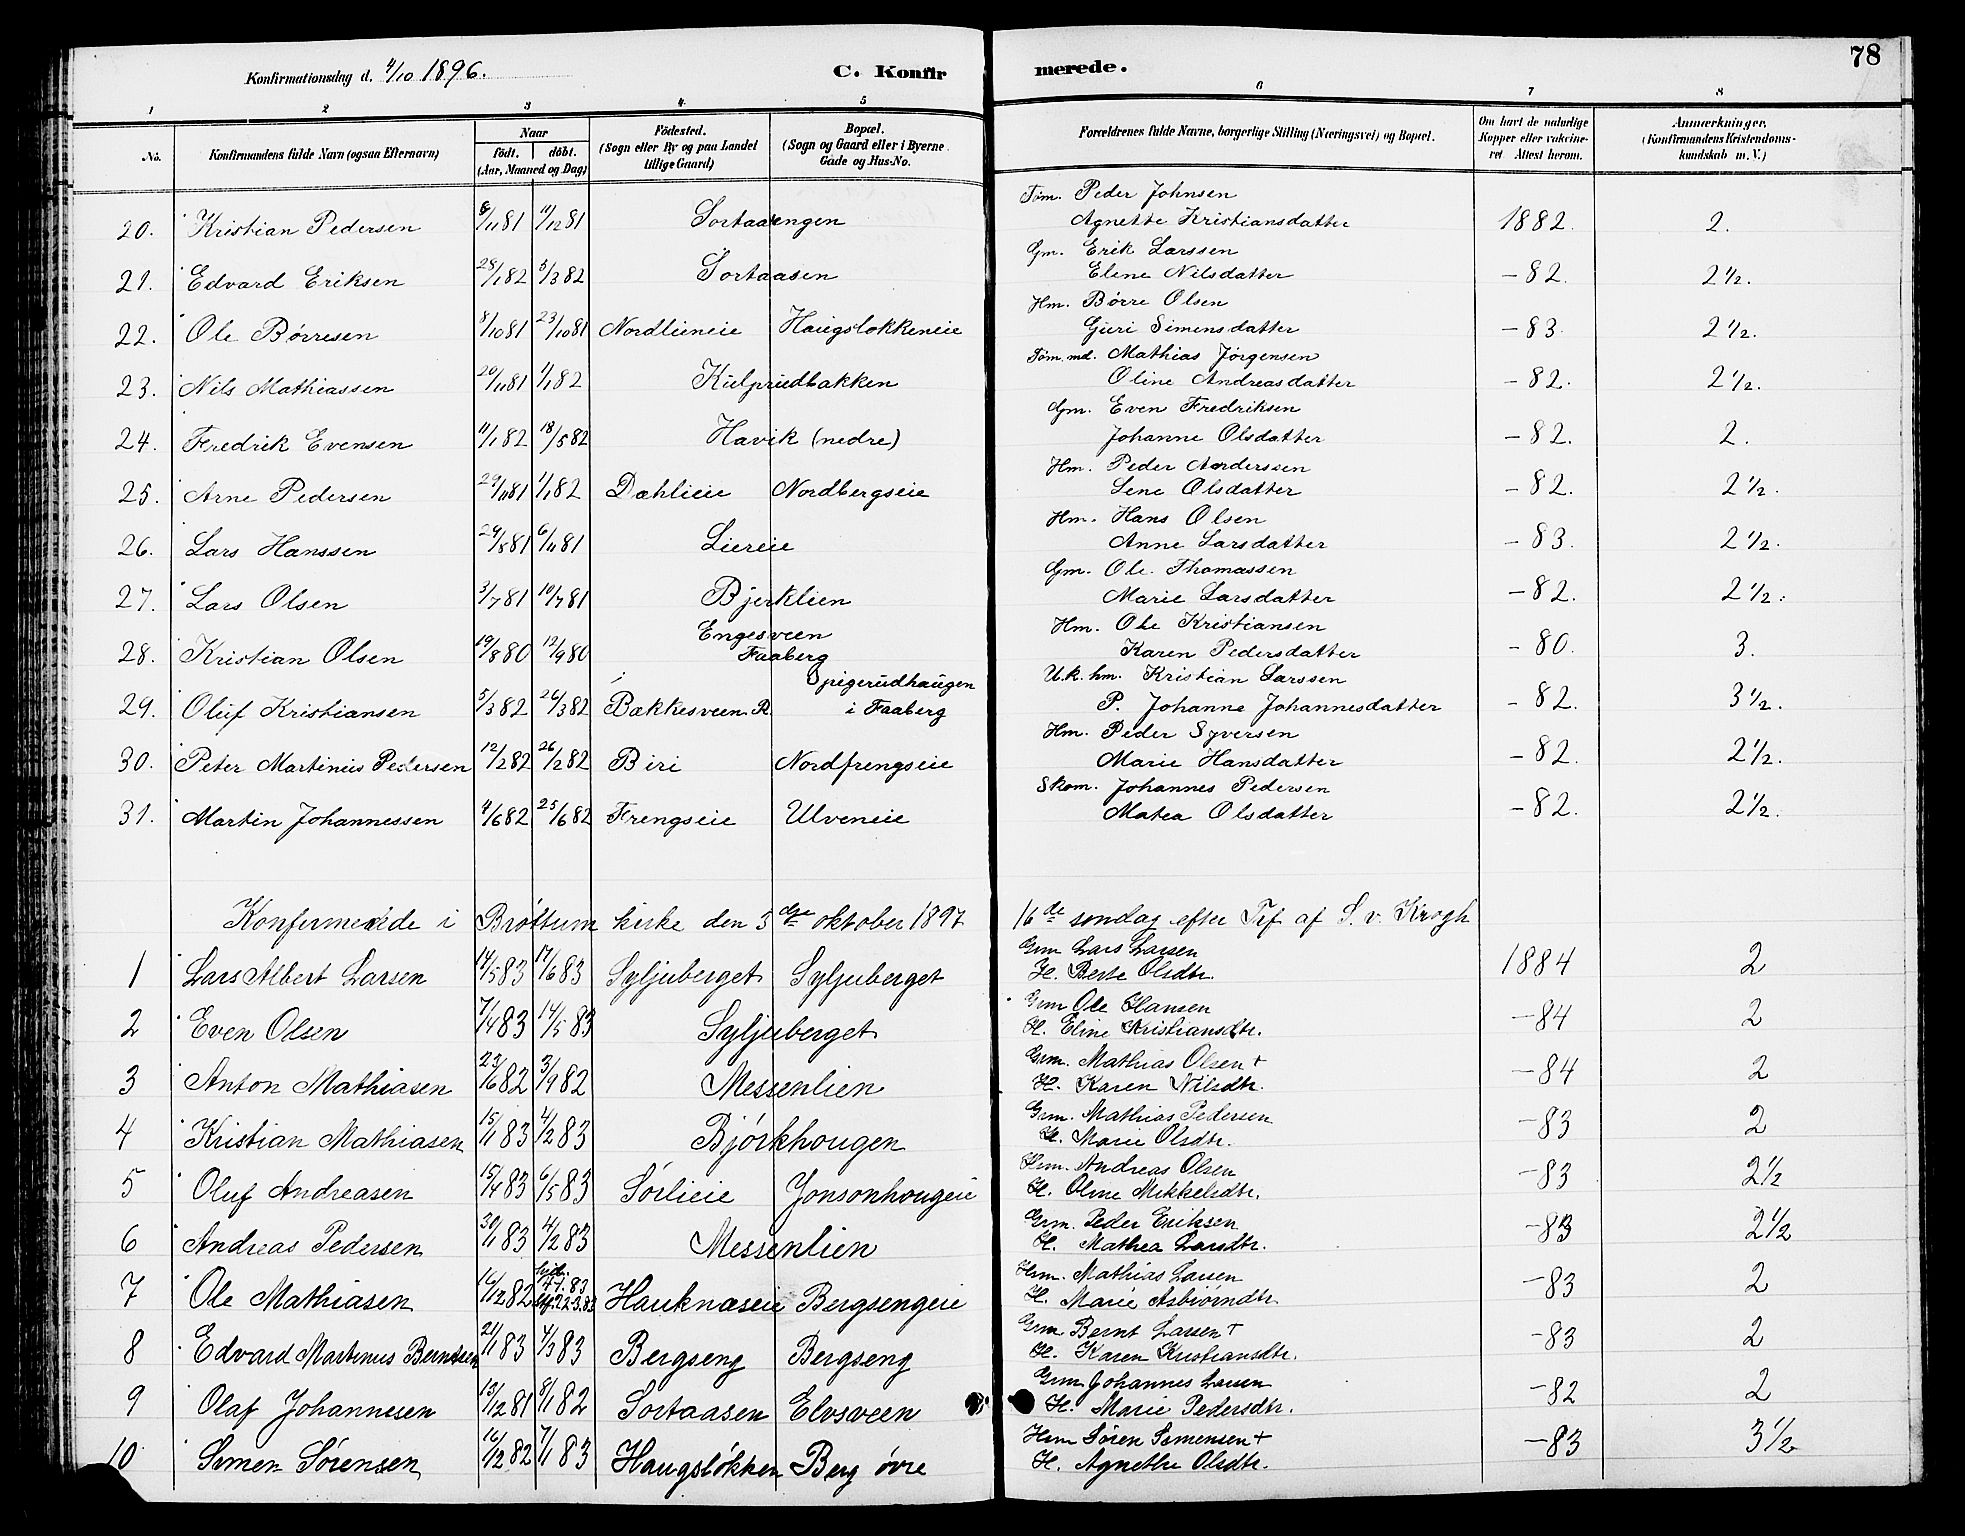 78
Konfirmationsdag d. 4/10 1896. C. Konfirmerede.
1 2 3 4 5 6 7 8
No. Konfirmandens fulde Navn (ogsaa Efternavn) Naar födt. döbt. (Aar, Maaned og Dag) Födested. (Sogn eller By og paa Landet tillige Gaard) Bopæl. (Sogn og Gaard eller i Byerne Gade og Hus-No. Forældrenes fulde Navne, borgerlige Stilling (Næringsvei) og Bopæl. Om havt de naturlige Kopper eller vakcineret Attest herom. Anmærkninger. (Konfirmandens Kristendomskundskab m. V.)
Tøm. Peder Johnsen
20. Kristian Pedersen 6/11 81 11/12 81 Sortaaengen Agnette Kristiansdatter 1882. 2.
Gm. Erik Larssen
21. Edvard Eriksen 28/1 82 5/3 82 Sortaasen Eline Nilsdatter - 82. 2 1/2.
Hm. Børre Olsen
22. Ole Børresen 8/10 81 23/10 81 Nordlieneie Haugsløkkeneie Guri Simensdatter - 83. 2 1/2.
Tøm. md. Mathias Jørgensen
23. Nils Mathiassen 20/11 81 1/1 82 Kulprudbakken Oline Andreasdatter - 82. 2 1/2.
Gm. Even Fredriksen
24. Fredrik Evensen 11/1 82 18/5 82 Havik (nedre) Johanne Olsdatter - 82. 2.
Hm. Peder Anderssen
25. Arne Pedersen 29/11 81 1/1 82 Dæhlieie Nordbergseie Lene Olsdatter - 82. 2 1/2.
Hm. Hans Olsen
26. Lars Hanssen 29/8 81 6/11 81 Liereie Anne Larsdatter - 83. 2 1/2.
Gm. Ole Thomassen
27. Lars Olsen 3/7 81 10/7 81 Bjerklien Marie Larsdatter - 82. 2 1/2.
Engesveen Hm. Ole Kristiansen
28. Kristian Olsen 19/8 80 12/9 80 Faaberg Karen Pedersdatter - 80. 3.
Spigerudhaugen U.k. hm. Kristian Larssen
29. Oluf Kristiansen 5/3 82 26/3 82 Bakkesveen R. i Faaberg P. Johanne Johannesdatter - 82. 3 1/2.
Hm. Peder Syversen
30. Peter Martinius Pedersen 12/2 82 26/2 82 Biri Nordfrengseie Marie Hansdatter - 82. 2 1/2.
Skom. Johannes Pedersen
31. Martin Johannessen 4/6 82 25/6 82 Frengseie Ulveneie Matea Olsdatter - 82. 2 1/2.
Konfermerede i Brøttum kirke den 3die oktober 1897 16de søndag efter Tref af S. v. Krogh
Grm Lars Larsen
1 Lars Albert Larsen 14/5 83 17/6 83 Syljuberget Syljuberget H. Berte Olsdtr. 1884 2
Grm Ole Hansen
2 Even Olsen 7/4 83 14/5 83 Syljuberget H. Eline Kristiansdtr. - 84 2
Grm. Mathias Olsen +
3 Anton Mathiasen 23/6 82 3/9 82 Messenlien H. Karen Nilsdtr. - 84 2
Grm. Mathias Pedersen
4 Kristian Mathiasen 15/1 83 4/2 83 Bjørkhougen H. Marie Olsdtr. - 83 2
Hm. Andreas Olsen
5 Oluf Andreasen 15/4 83 6/5 83 Sørlieie Jonsonhougeie H. Oline Mikkelsdtr. - 83 2 1/2
Grm. Peder Eriksen
6 Andreas Pedersen 30/1 83 4/2 83 Messenlien H. Mathea Larsdtr. - 83 2 1/2
Hm. Mathias Larsen
7 Ole Mathiasen 16/12 82 hjd. 4 1. 83 22.3.83 Hauknæseie Bergsengeie H. Marie Asbiørndtr. - 83 2
Grm Bernt Larsen +
8 Edvard Martinus Berntsen 21/1 83 4/3 83 Bergseng Bergseng H. Karen Kristiansdtr. - 83 2
Grm Johannes Larsen
9 Olaf Johannesen 13/12 81 8/1 82 Sortaasen Elvsveen H. Marie Pedersdtr. - 82 2
Hm Søren Simensen +
10 Simen Sørensen 16/12 82 7/1 83 Haugsløkken Berg øvre H. Agnethe Olsdtr. - 83 3 1/2